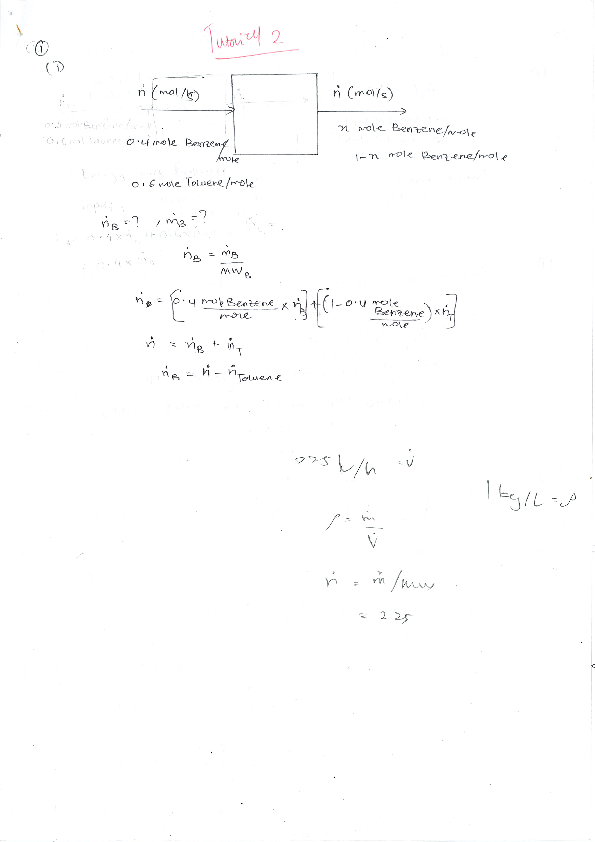 Tutorial 2
①
(i)
ṅ (mol/s)
ṅ (mol/s)
0.4 mole Benzene/mole
x mole Benzene/mole
1-x mole Benzene/mole
0.6 mole Toluene/mole
ṅ_B = ? , ṁ_B = ?
ṅ_B = ṁ_B / MW_B
ṅ_B = [0.4 mole Benzene/mole × ṅ_B] + [(1-0.4 mole Benzene/mole) × ṅ_T]
ṅ = ṅ_B + ṅ_T
ṅ_B = ṅ - ṅ_Toluene
225 L/h = V̇
1 kg/L = ρ
ρ = ṁ / V̇
ṅ = ṁ/MW
= 225